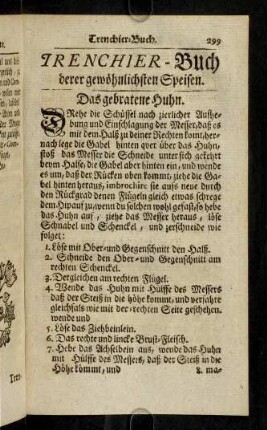 Trenchier-Buch. 299
TRENCHIER-Buch
derer gewöhnlichsten Speisen.
Das gebratene Huhn.
DRehe die Schüssel nach zierlicher Aufhe-
bung und Einschlagung der Messer, daß es
mit dem Halß zu deiner Rechten komt, her-
nach lege die Gabel hinten qver über das Huhn,
stoß das Messer die Schneide unter sich gekehrt
beym Halse, die Gabel aber hinten ein, und wende
es um, daß der Rücken oben kommt, ziehe die Ga-
bel hinten heraus, imbrochire sie aufs neue durch
den Rückgrad denen Flügeln gleich etwas schrege
dem hinauf zu, wenn du solches wohl gefasst, so hebe
das Huhn auf, ziehe das Messer heraus, löse
Schnabel und Schenckel, und zerschneide wie
folget:
1. Löse mit Ober- und Gegenschnitt den Halß.
2. Schneide den Ober- und Gegenschnitt am
rechten Schenckel.
3. Dergleichen am rechten Flügel.
4. Wende das Huhn mit Hülffe des Messers
daß der Steiß in die höhe komt, und verfahre
gleichfals wie mit der rechten Seite geschehen.
wende und
5. Löse das Ziehbeinlein.
6. Das rechte und lincke Brust-Fleisch.
7. Hebe das Achselbein aus, wende das Huhn
mit Hülffe des Messers, daß der Steiß in die
Höhe kommt, und 8. ma-